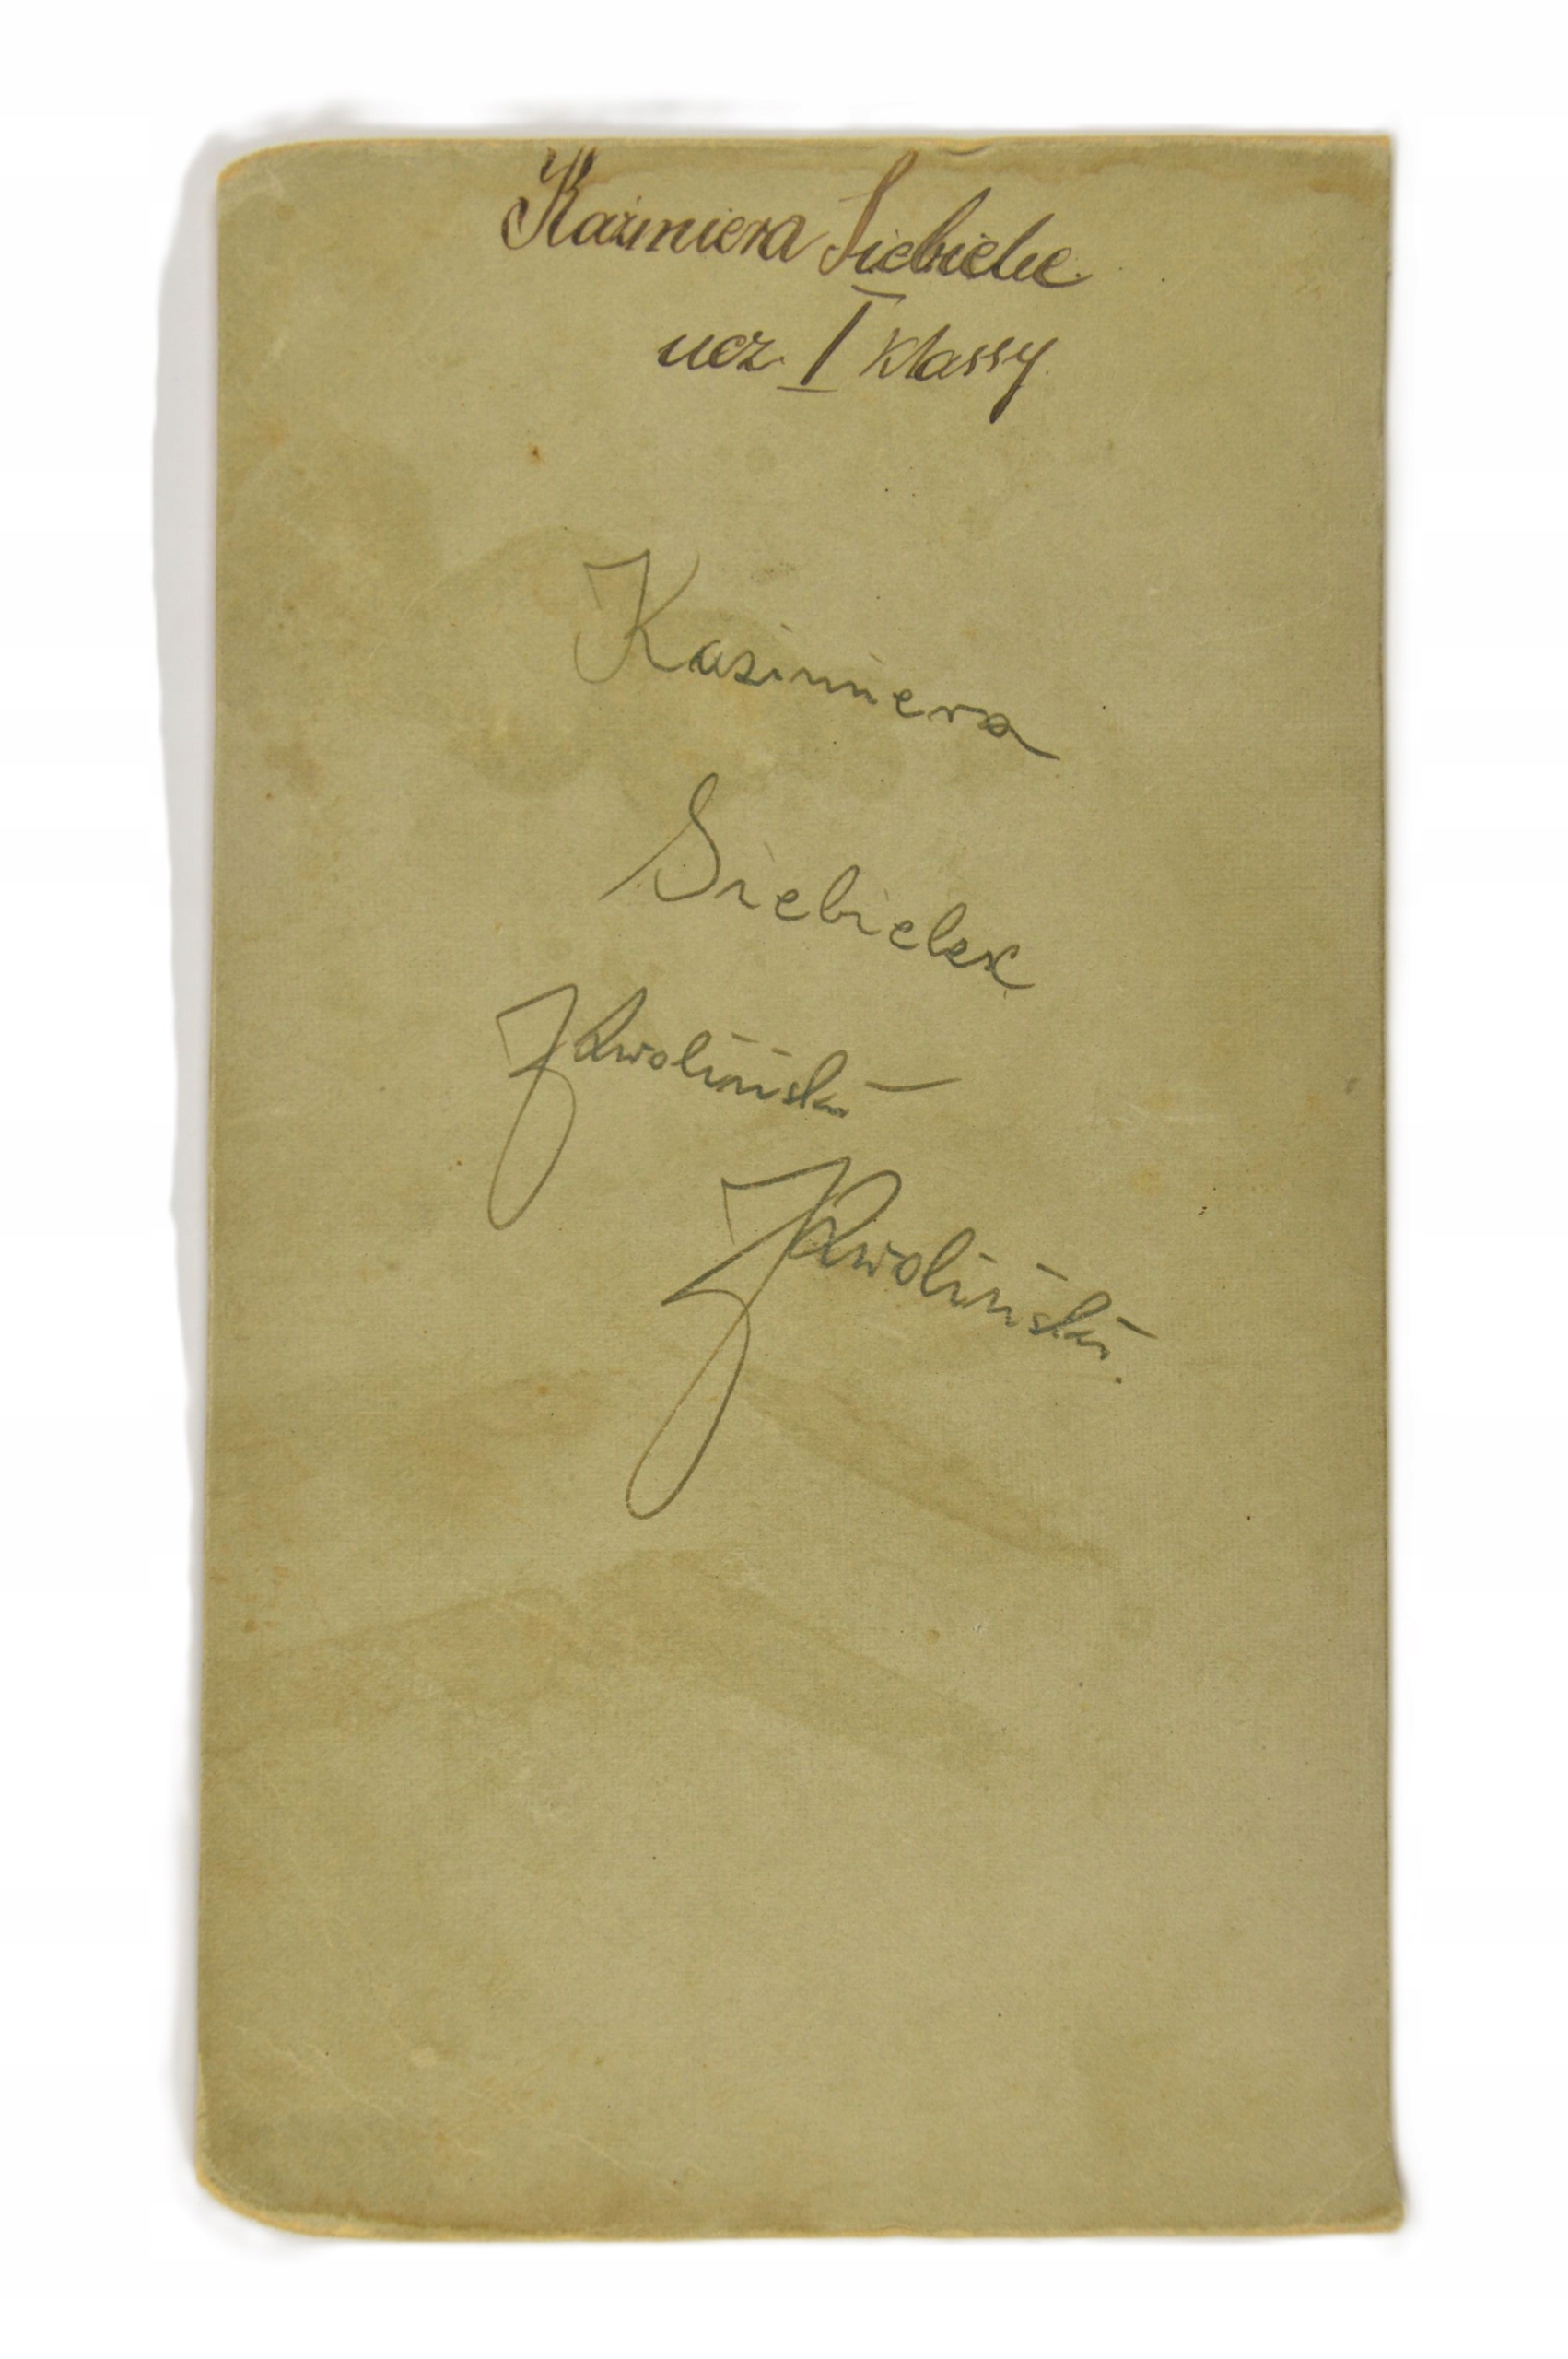 Kazimiera Siebielec
ucz. I klassy
Kazimiera
Siebielec
JKwoliński
JKwoliński.